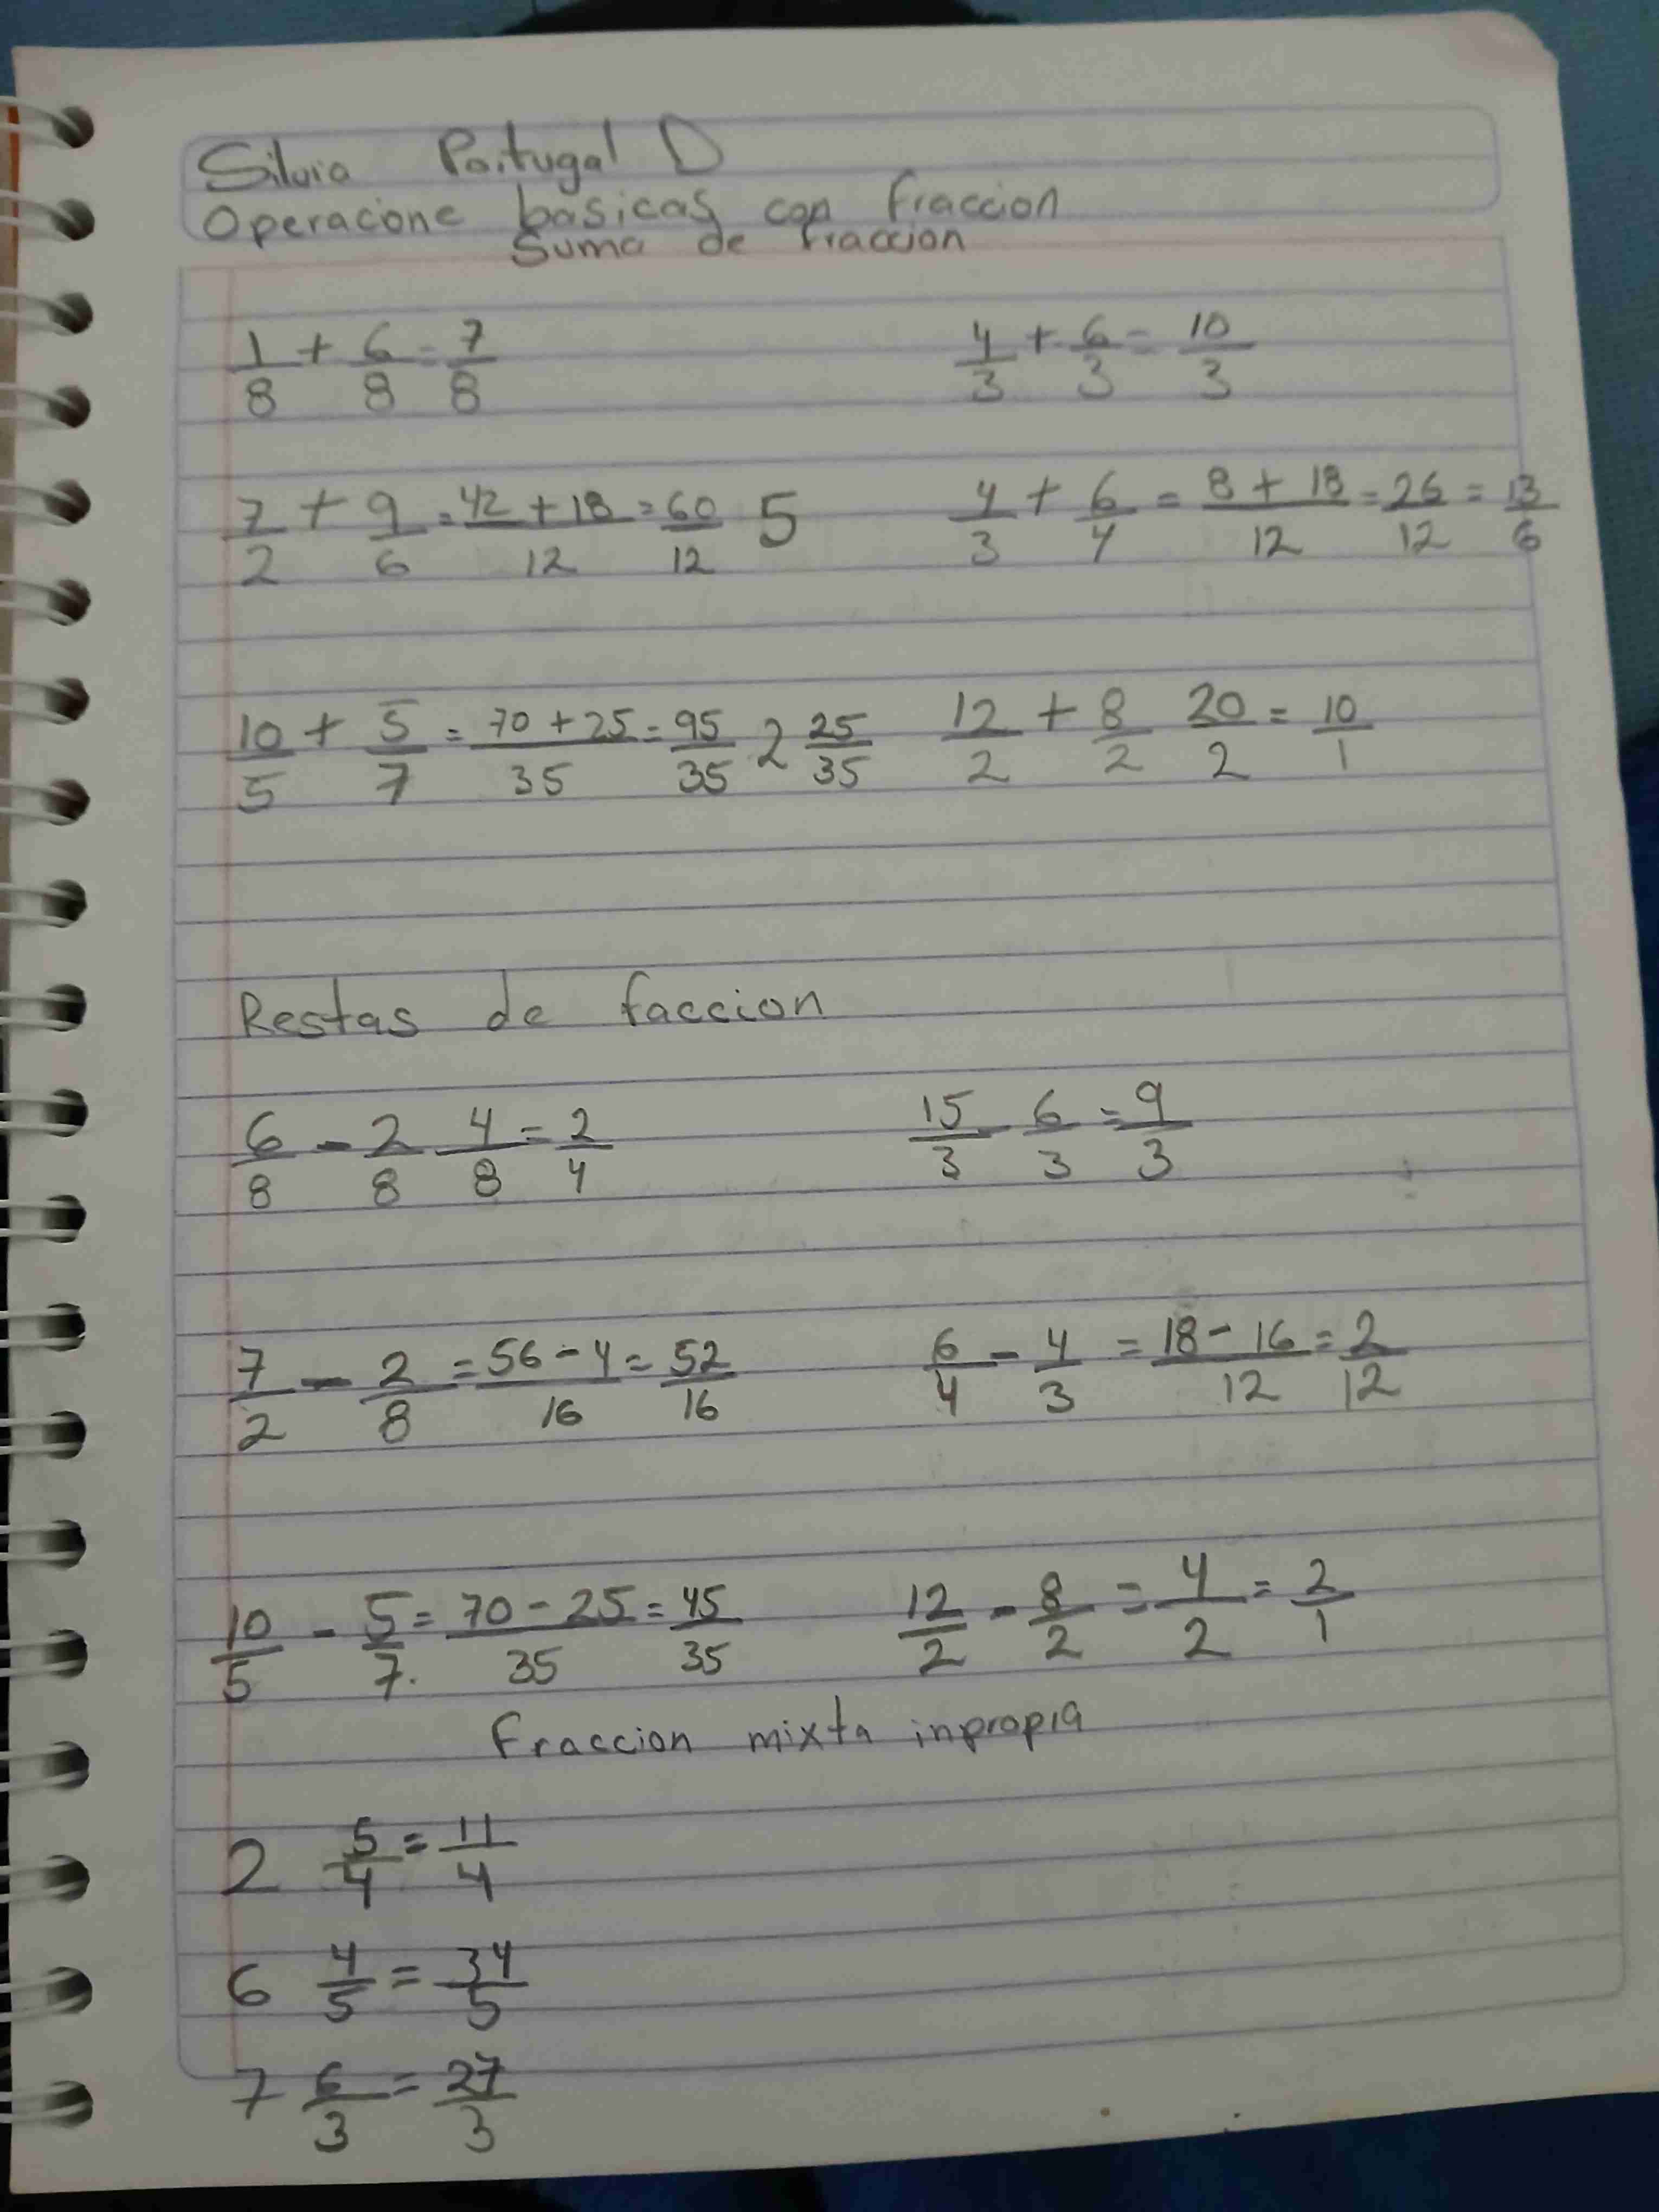 Silvia Portugal D
Operacione basicas con fraccion
Suma de fraccion
1/8 + 6/8 = 7/8    4/3 + 6/3 = 10/3
7/2 + 9/6 = 42 + 18/12 = 60/12 5    4/3 + 6/4 = 8 + 18/12 = 26/12 = 13/6
10/5 + 5/7 = 70 + 25/35 = 95/35 2 25/35    12/2 + 8/2 20/2 = 10/1
Restas de faccion
6/8 - 2/8 4/8 = 2/4    15/3 - 6/3 = 9/3
7/2 - 2/8 = 56 - 4/16 = 52/16    6/4 - 4/3 = 18 - 16/12 = 2/12
10/5 - 5/7. = 70 - 25/35 = 45/35    12/2 - 8/2 = 4/2 = 2/1
Fraccion mixta inpropia
2 5/4 = 11/4
6 4/5 = 34/5
7 6/3 = 27/3